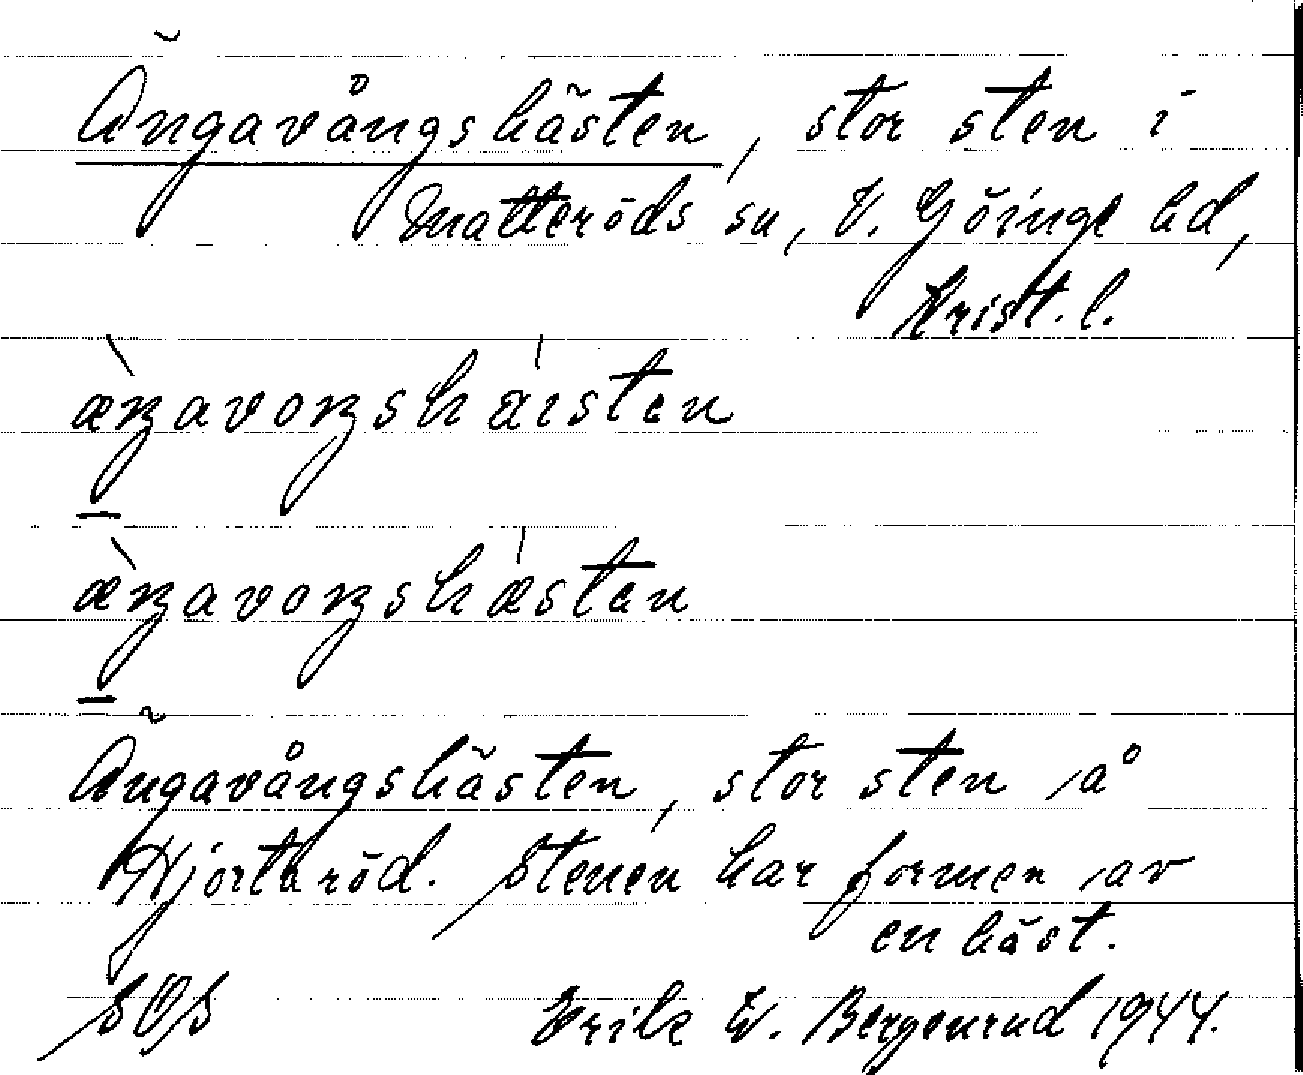 Ängavångshästen, stor sten i
Matteröds sn, V. Göinge hd,
Krist. l.
æ̀ŋavoŋshäístən
æ̀ŋavoŋshǽstən
Ängavångshästen, stor sten å
Hjortaröd. Stenen har formen av
en häst.
SOS Erik W. Bergenrud 1944.